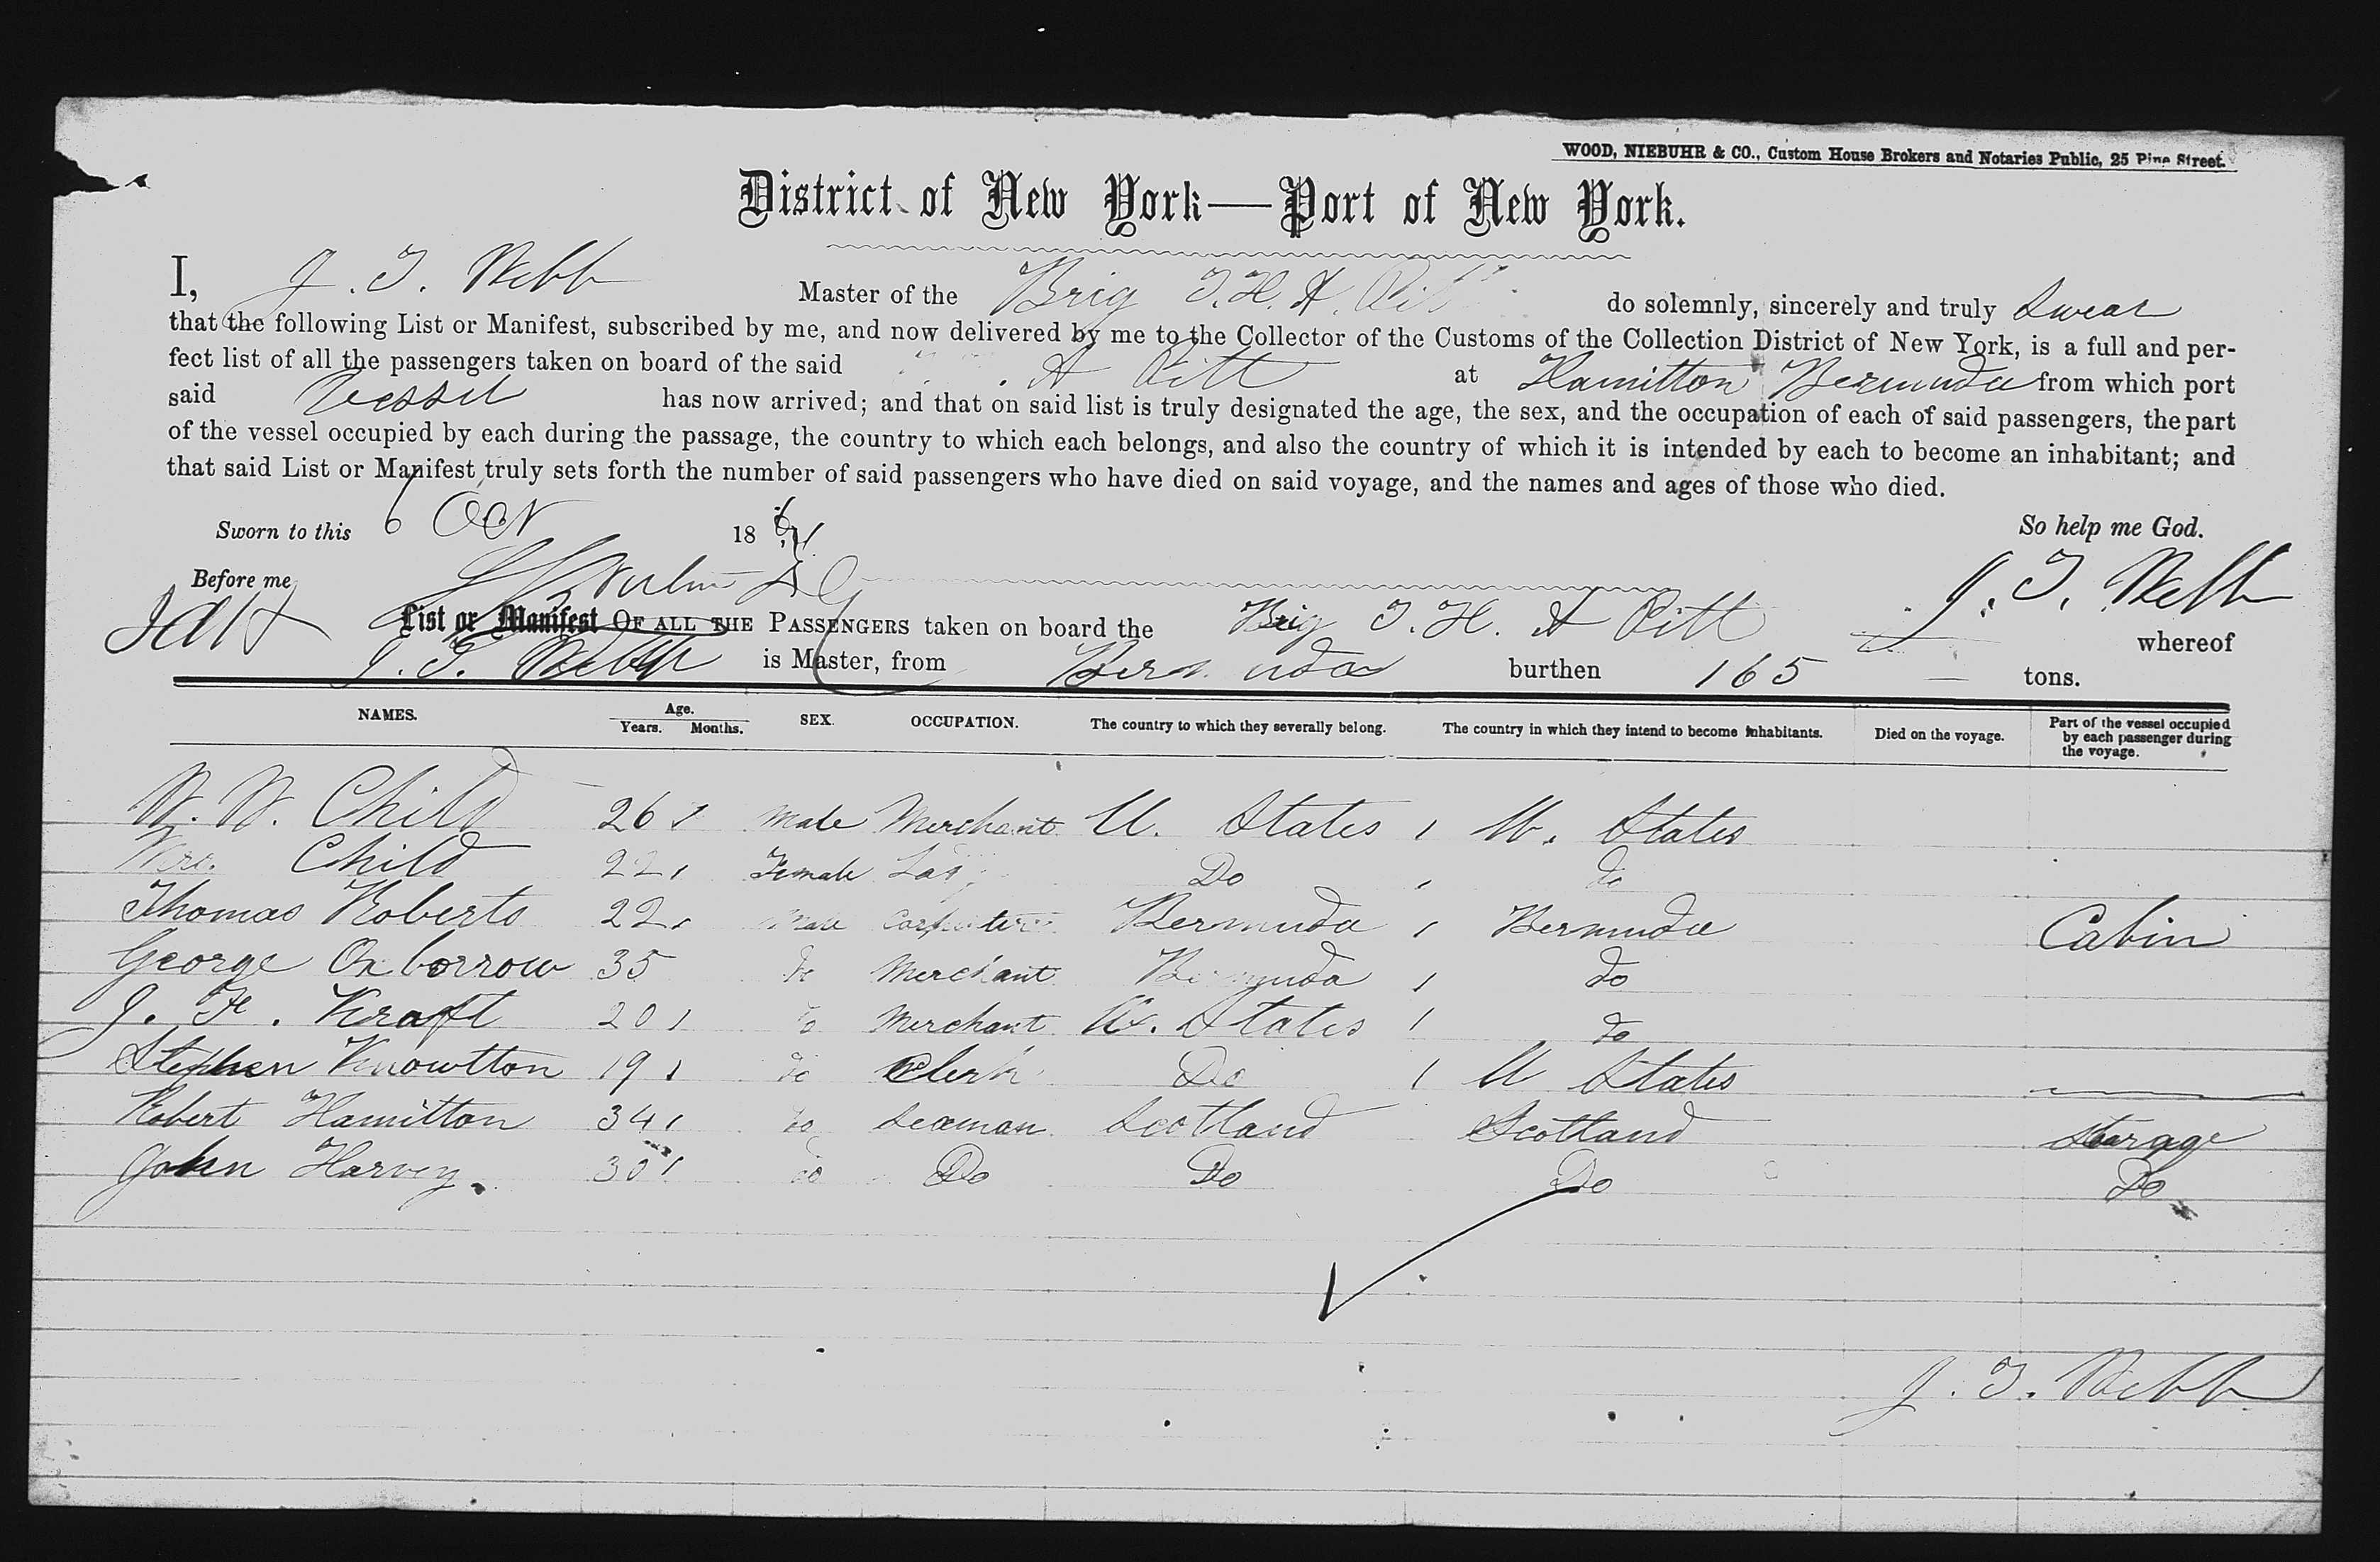 WOOD, NIEBUHR & CO., Custom House Brokers and Notaries Public, 25 Pine Street.
District of New York—Port of New York.
I, J. T. Webb Master of the Brig T. H. A. Pitt do solemnly, sincerely and truly Swear
that the following List or Manifest, subscribed by me, and now delivered by me to the Collector of the Customs of the Collection District of New York, is a full and per-
fect list of all the passengers taken on board of the said A Pitt at Hamilton Bermuda from which port
said Vessel has now arrived; and that on said list is truly designated the age, the sex, and the occupation of each of said passengers, the part
of the vessel occupied by each during the passage, the country to which each belongs, and also the country of which it is intended by each to become an inhabitant; and
that said List or Manifest truly sets forth the number of said passengers who have died on said voyage, and the names and ages of those who died.
Sworn to this 6 Oct 18 So help me God.
Before me J. T. Webb
List or Manifest OF ALL THE PASSENGERS taken on board the Brig T. H. A Pitt whereof
J. T. Webb is Master, from Bermuda burthen 165 tons.
NAMES. Age. Years. Months. SEX. OCCUPATION. The country to which they severally belong. The country in which they intend to become inhabitants. Died on the voyage. Part of the vessel occupied by each passenger during the voyage.
W. W. Child 26 Male Merchant U. States U. States
Mrs. Child 22 Female Lady Do do
Thomas Roberts 22 Male Carpenter Bermuda Bermuda Cabin
George Oxborrow 35 do Merchant Bermuda do
J. F. Kraft 20 do Merchant U. States do
Stephen Knowtton 19 do Clerk Do U States
Robert Hamitton 34 do Seaman Scotland Scotland Starage
John Harvey. 30 do Do Do Do Do
J. T. Webb